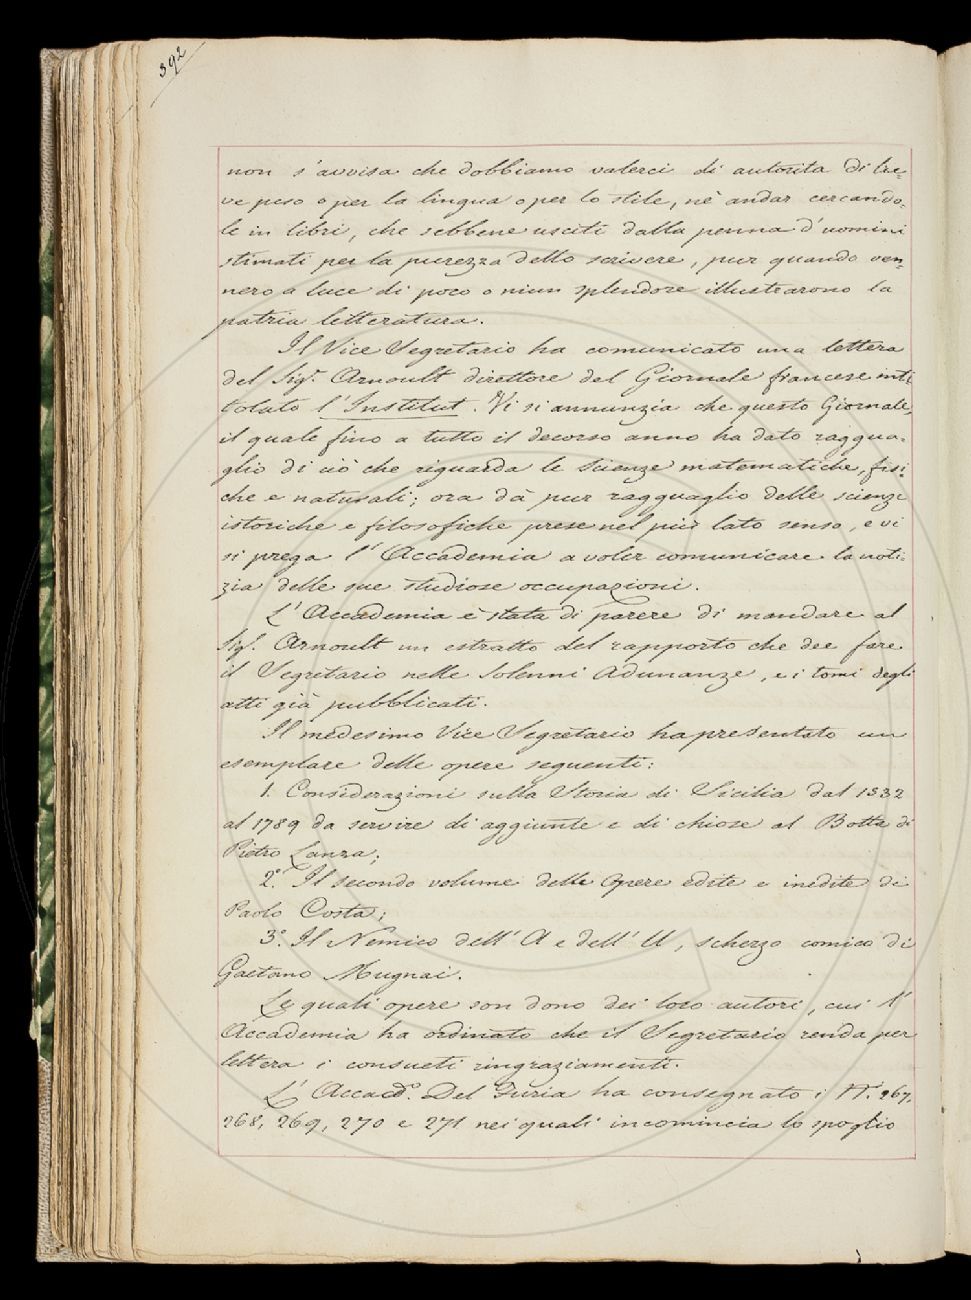 392
non s'avvisa che dobbiamo valerci di autorità di lie=
ve peso o per la lingua o per lo stile, nè andar cercando=
le in libri, che sebbene usciti dalla penna d'uomini
stimati per la purezza dello scrivere, pur quando ven=
nero a luce di poco o niun splendore illustrarono la
patria letteratura.
Il Vice Segretario ha comunicato una lettera
del Sig.r Arnoult direttore del Giornale francese inti
tolato l'Institut. Vi si annunzia che questo Giornale,
il quale fino a tutto il decorso anno ha dato raggua=
glio di ciò che riguarda le Scienze matematiche, fisi=
che e naturali; ora dà pur ragguaglio delle scienze
istoriche e filosofiche prese nel più lato senso, e vi
si prega l'Accademia a voler comunicare la noti=
zia delle sue studiose occupazioni.
L'Accademia è stata di parere di mandare al
Sig.r Arnoult un estratto del rapporto che dee fare
il Segretario nelle Solenni Adunanze, e i tomi degli
atti già pubblicati.
Il medesimo Vice Segretario ha presentato un
esemplare delle opere seguenti:
1. Considerazioni sulla Storia di Sicilia dal 1532
al 1789 da servire di aggiunte e di chiose al Botta di
Pietro Lanza;
2.° Il secondo volume delle Opere edite e inedite di
Paolo Costa;
3.° Il Nemico dell'A e dell'U, scherzo comico di
Gaetano Mugnai.
Le quali opere son dono dei loro autori, cui l'
Accademia ha ordinato che il Segretario renda per
lettera i consueti ringraziamenti.
L'Accad.° Del Furia ha consegnato i N.i 267,
268, 269, 270 e 271 nei quali incomincia lo spoglio